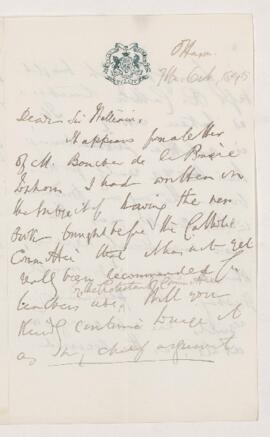 Ottawa
7th Oct. 1895
Dear Sir William,
It appears from a letter
of M. Boucher de la Bruère
to whom I had written on
the subject of having the new
book brought before the Catholic
Committee that it has not yet
really been recommended for
the Protestant Committee
teachers use. Will you
kindly continue to urge it
as my chief argument